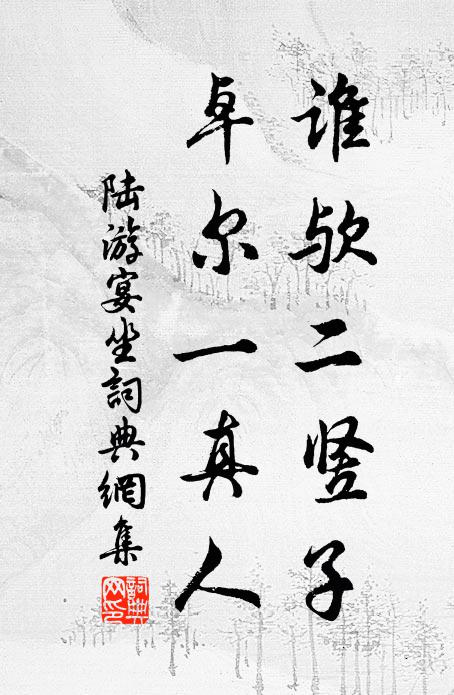 谁欤二竖子
卓尔一真人
陆游宴坐詞典網集
詞典
网印